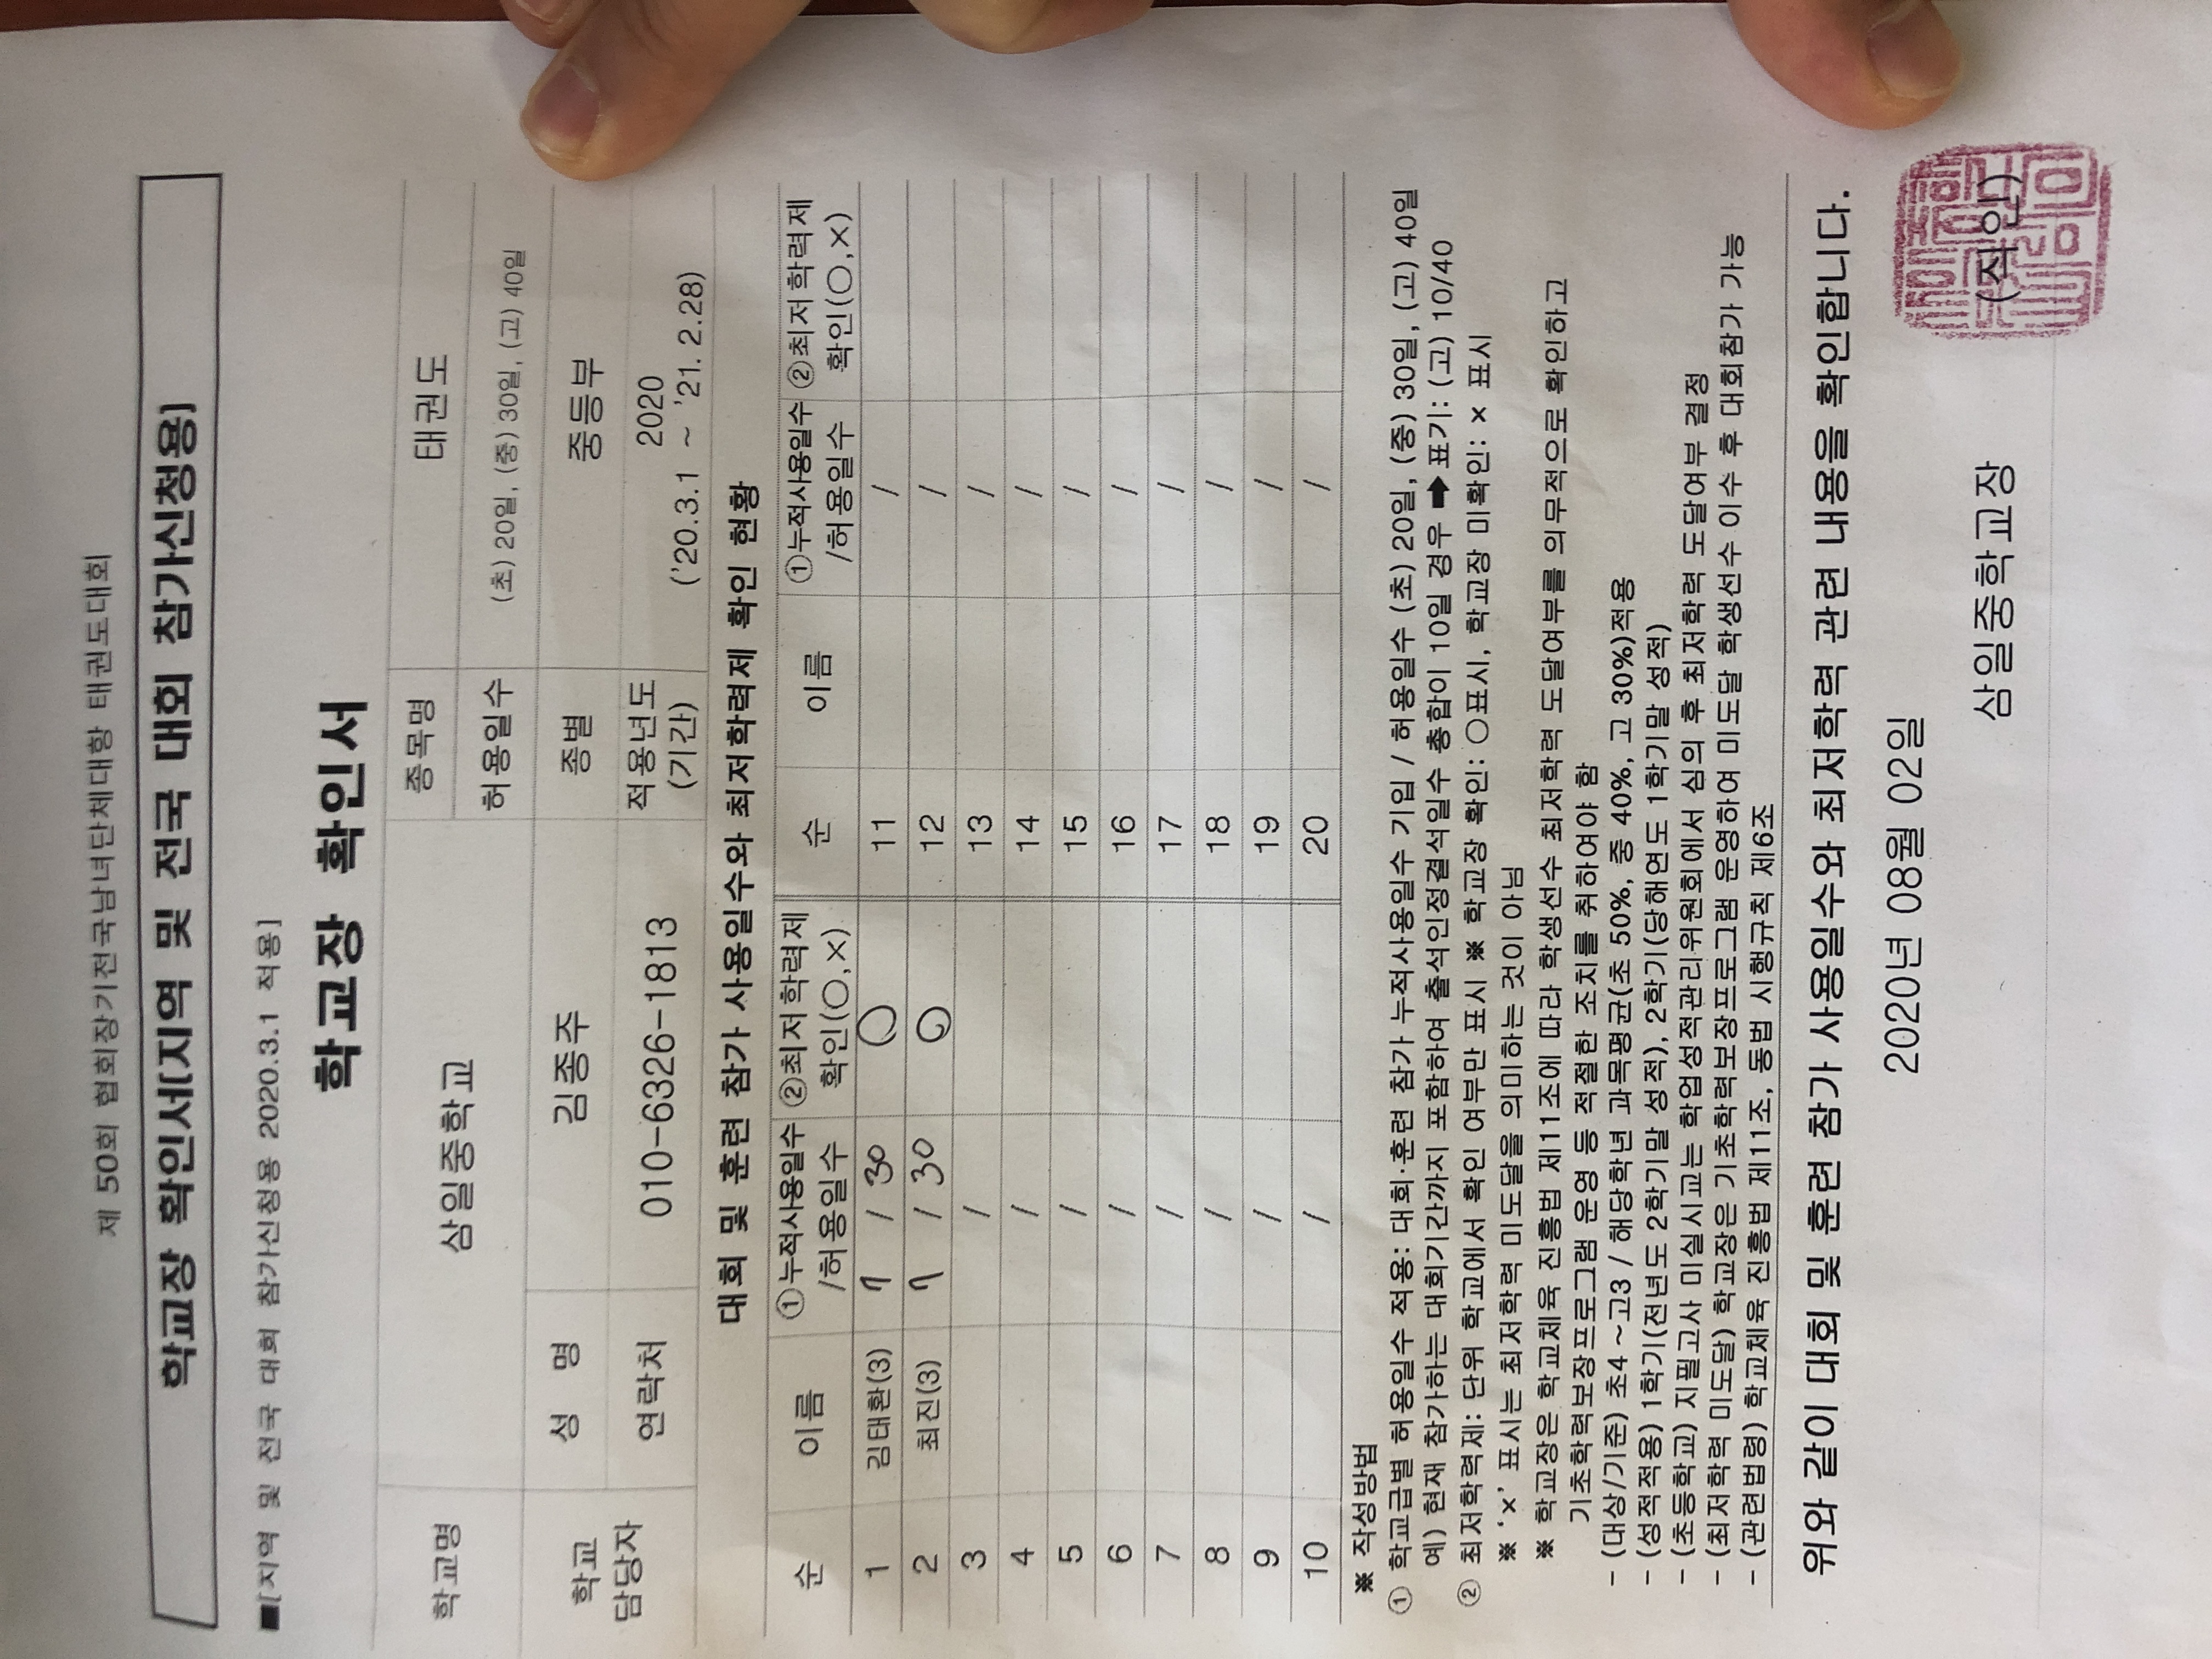 제 50회 협회장기전국남녀단체대항 태권도대회
학교장 확인서(지역 및 전국 대회 참가신청용)
■[지역 및 전국 대회 참가신청용 2020.3.1 적용]
학교장 확인서
학교명 삼일중학교 종목명 태권도
허용일수 (초) 20일, (중) 30일, (고) 40일
학교 담당자 성 명 김종주 종별 중등부
연락처 010-6326-1813 적용년도 (기간) 2020 ('20.3.1 ~ '21. 2.28)
대회 및 훈련 참가 사용일수와 최저학력제 확인 현황
순 이름 ①누적사용일수 /허용일수 ②최저학력제 확인(○,×) 순 이름 ①누적사용일수 /허용일수 ②최저학력제 확인(○,×)
1 김태환(3) / 30 ○ 11 /
2 최진(3) / 30 ○ 12 /
3 / 13 /
4 / 14 /
5 / 15 /
6 / 16 /
7 / 17 /
8 / 18 /
9 / 19 /
10 / 20 /
※ 작성방법
① 학교급별 허용일수 적용: 대회·훈련 참가 누적사용일수 기입 / 허용일수 (초) 20일, (중) 30일, (고) 40일
예) 현재 참가하는 대회기간까지 포함하여 출석인정결석일수 총합이 10일 경우 ➡ 표기: (고) 10/40
② 최저학력제: 단위 학교에서 확인 여부만 표시 ※ 학교장 확인: ○표시, 학교장 미확인: × 표시
※ '×' 표시는 최저학력 미도달을 의미하는 것이 아님
※ 학교장은 학교체육 진흥법 제11조에 따라 학생선수 최저학력 도달여부를 의무적으로 확인하고
기초학력보장프로그램 운영 등 적절한 조치를 취하여야 함
- (대상/기준) 초4 ~고3 / 해당학년 과목평균(초 50%, 중 40%, 고 30%)적용
- (성적적용) 1학기(전년도 2학기말 성적), 2학기(당해연도 1학기말 성적)
- (초등학교) 지필고사 미실시교는 학업성적관리위원회에서 심의 후 최저학력 도달여부 결정
- (최저학력 미도달) 학교장은 기초학력보장프로그램 운영하여 미도달 학생선수 이수 후 대회참가 가능
- (관련법령) 학교체육 진흥법 제11조, 동법 시행규칙 제6조
위와 같이 대회 및 훈련 참가 사용일수와 최저학력 관련 내용을 확인합니다.
2020년 08월 02일
삼일중학교장 (직인)